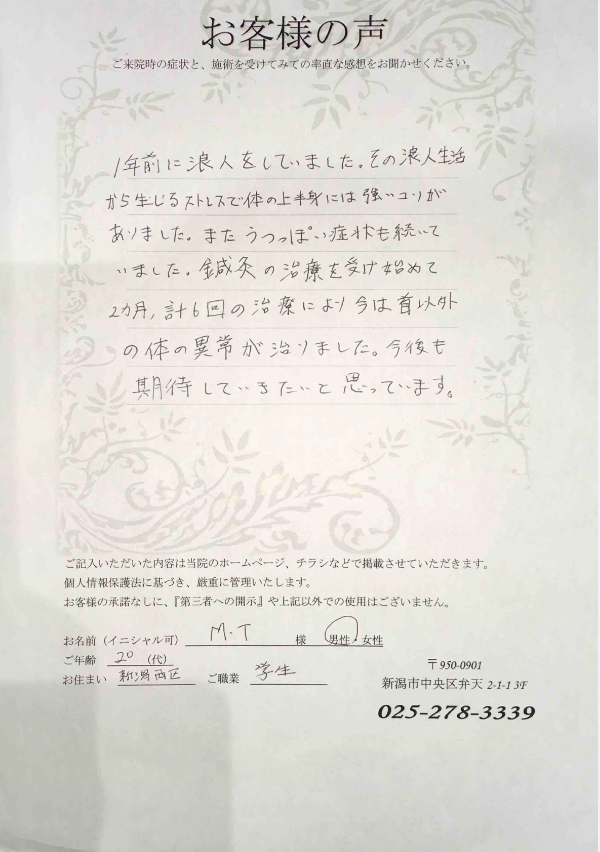 お客様の声
ご来院時の症状と、施術を受けてみての率直な感想をお聞かせください。
1年前に浪人をしていました。その浪人生活
から生じるストレスで体の上半身には強いコリが
ありました。またうつっぽい症状も続いて
いました。鍼灸の治療を受け始めて
2カ月,計6回の治療により今は首以外
の体の異常が治りました。今後も
期待していきたいと思っています。
ご記入いただいた内容は当院のホームページ、チラシなどで掲載させていただきます。
個人情報保護法に基づき、厳重に管理いたします。
お客様の承諾なしに、『第三者への開示』や上記以外での使用はございません。
お名前（イニシャル可） M.T 様 男性・女性
ご年齢 20 (代)
お住まい 新潟西区 ご職業 学生
〒950-0901
新潟市中央区弁天 2-1-1 3F
025-278-3339